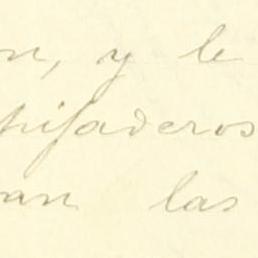 n, y le
hifaderos
an las